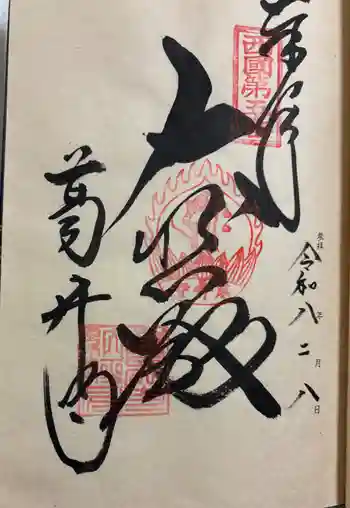 奉拝
西國第五番
大悲殿
葛井寺
登拝 令和八年二月八日